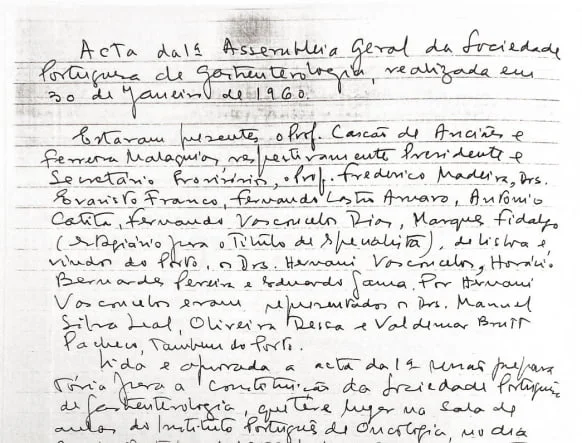 Acta da 1ª Assembleia Geral da Sociedade
Portuguesa de Gastrenterologia, realizada em
30 de Janeiro de 1960.
Estavam presentes o Prof. Cascão de Anciães e
Ferreira Malaquias respectivamente Presidente e
Secretário Provisórios, o Prof. Frederico Madeira, Drs.
Evaristo Franco, Fernando Castro Amaro, António
Catita, Fernando Vasconcelos Dias, Marques Fidalgo
(estagiário para o Título de Especialista), de Lisboa e
vindos do Porto, os Drs. Hernani Vasconcelos, Horácio
Bernardes Pereira e Eduardo Gama. Por Hernani
Vasconcelos eram representados os Drs. Manuel
Silva Leal, Oliveira Dessa e Valdemar
Pacheco, Tambem do Porto.
Lida e aprovada a acta da 1ª prepara
tória para a constituição da Sociedade Portuguesa
de Gastrenterologia, que teve lugar na sala de
aulas do Instituto Português de Oncologia, no dia